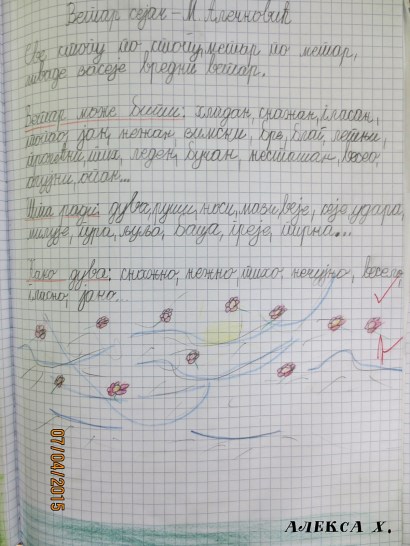 Ветар сејач - М. Алечковић
Све стопу по стопу, метар по метар,
ливаде засеје вредни ветар.
Ветар може бити: хладан, снажан, гласан,
топао, јак, нежан, зимски, брз, благ, летњи,
пролећни, тихи, леден, бучан, несташан, весео,
олујни, оштар...
Шта ради: дува, руши, носи, мази, веје, сеје, удара,
милује, гура, љуља, баца, греје, пирка...
Како дува: снажно, нежно, тихо, нечујно, весело,
гласно, јако...
07/04/2015
АЛЕКСА Х.